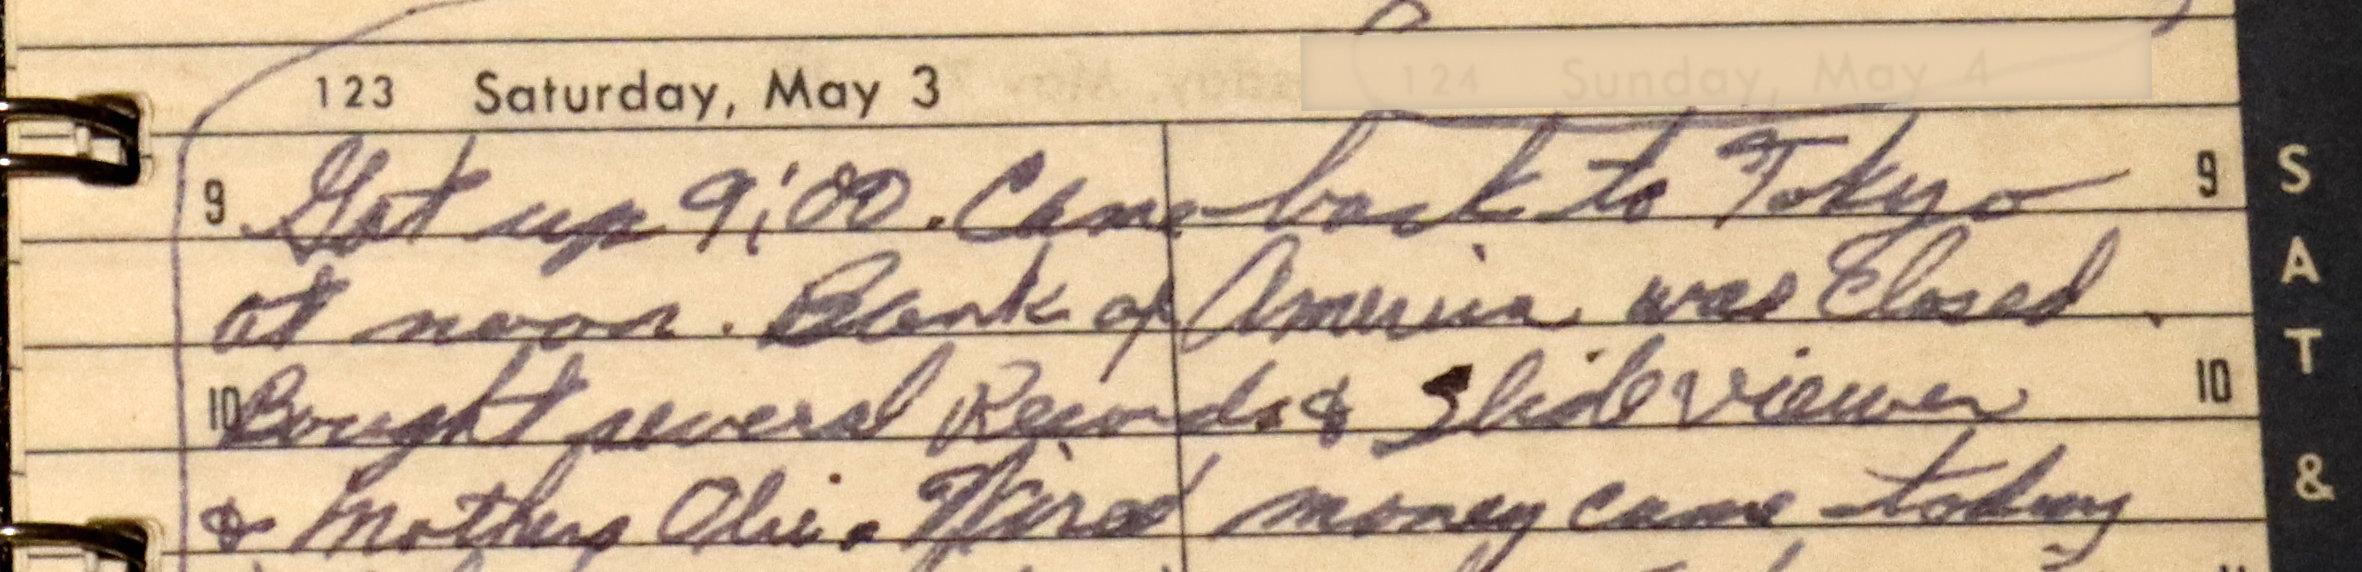 123 Saturday, May 3 124 Sunday, May 4
9 Got up 9:00. Came back to Tokyo 9
at noon. Bank of America was Closed.
10 Bought several Records & Slide viewer 10
& Mothers Obi. Wired money came today
SAT &